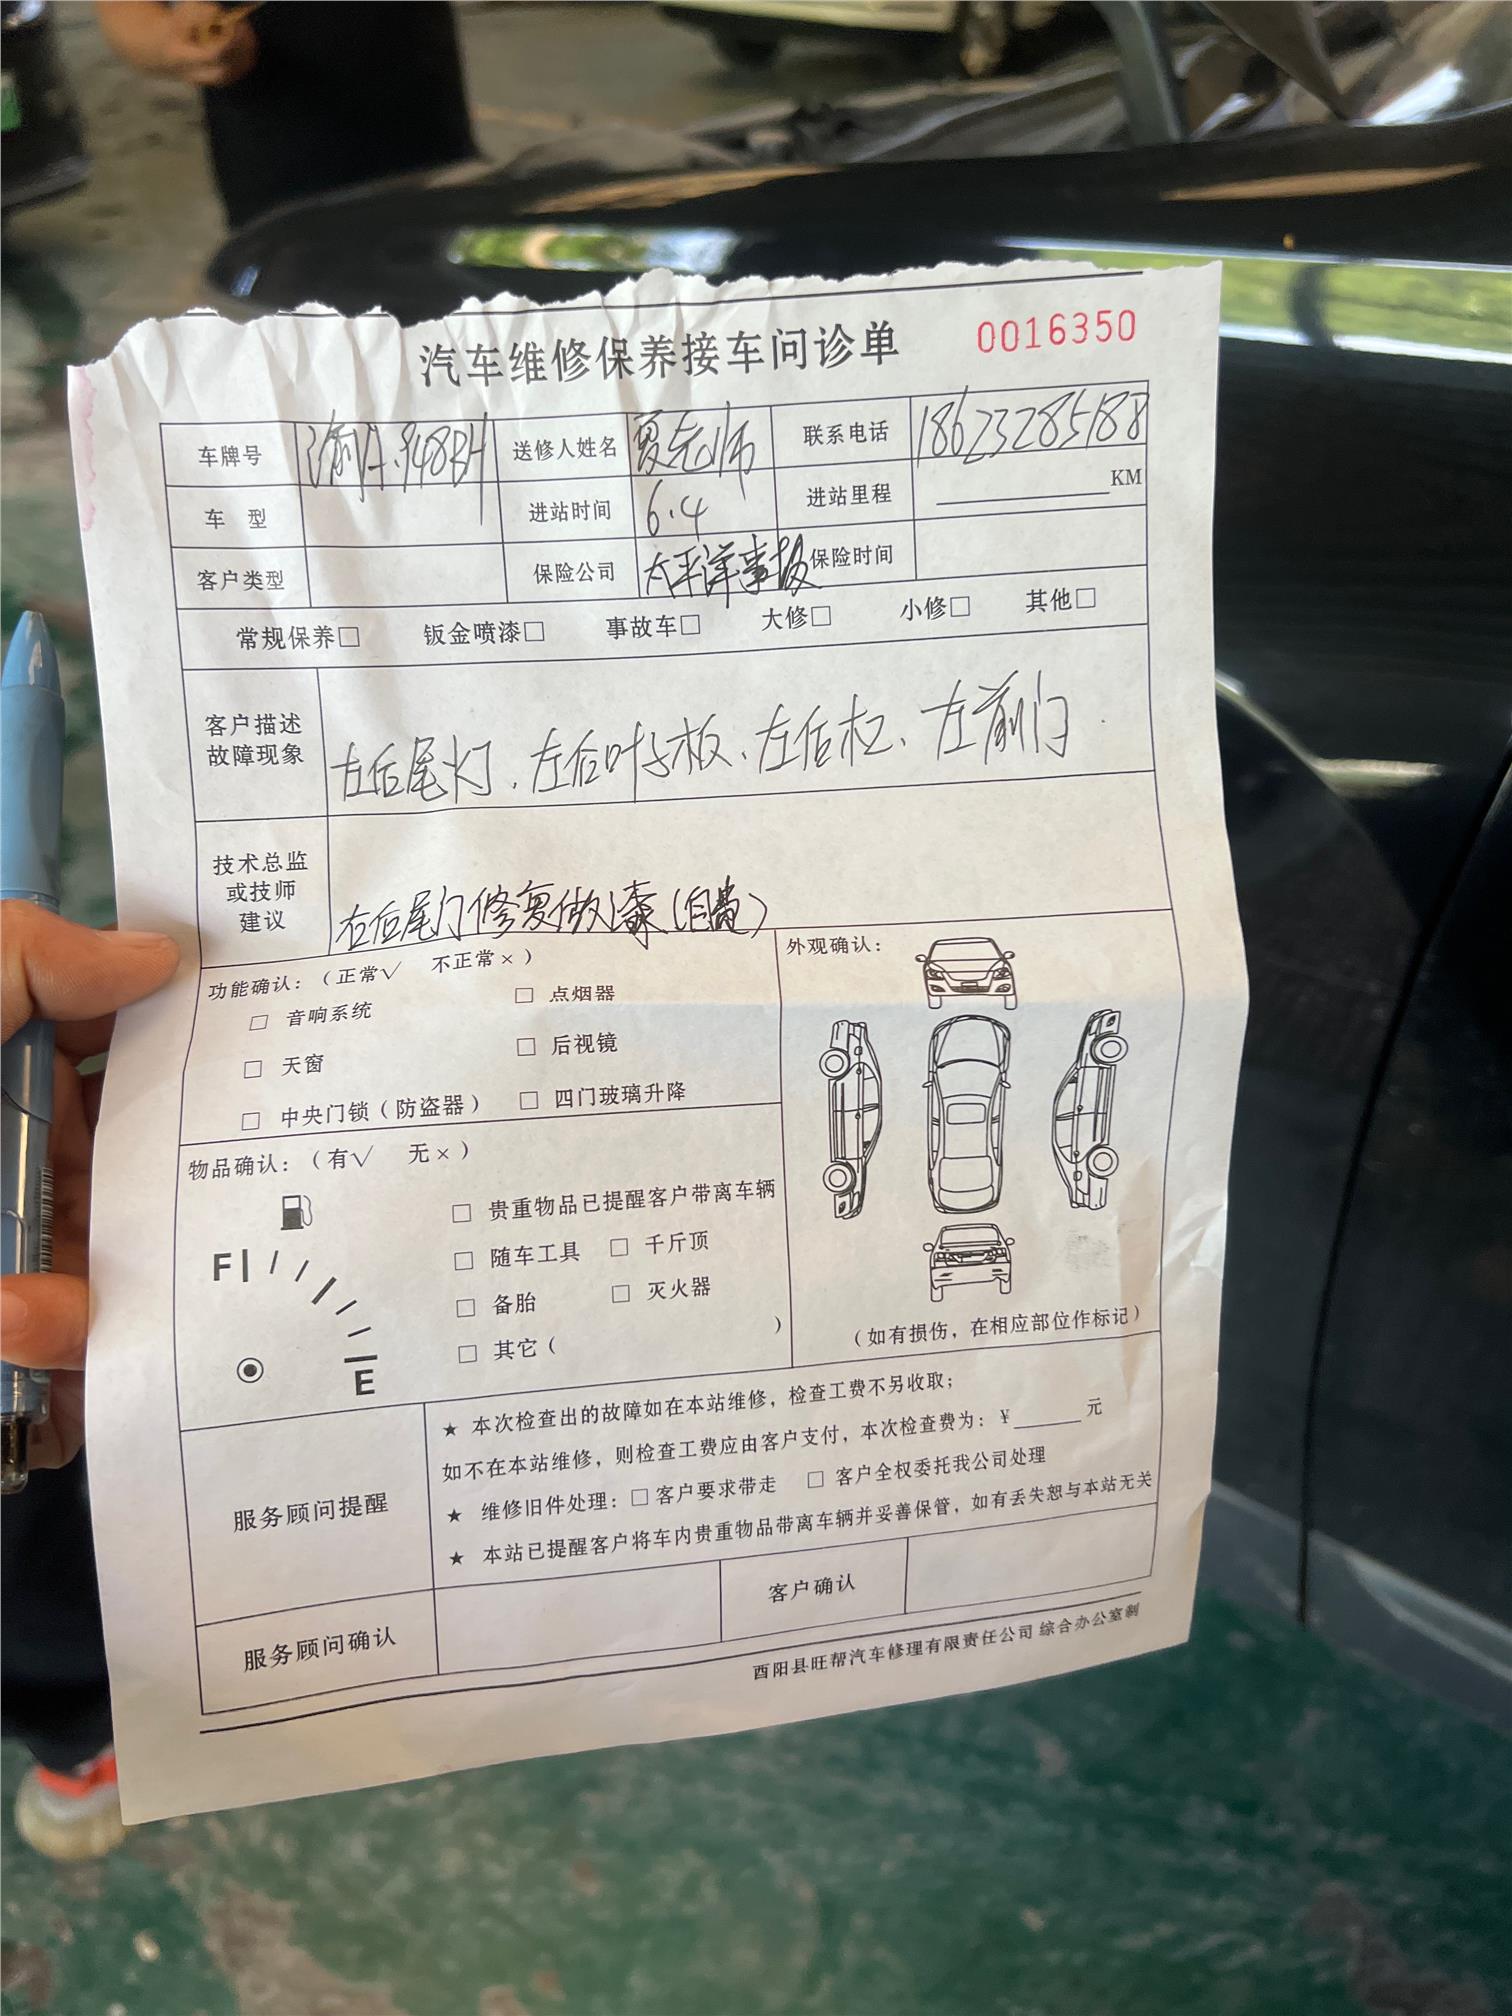 汽车维修保养接车问诊单 0016350
车牌号 送修人姓名 联系电话 18623285188
车 型 进站时间 6.4 进站里程 KM
客户类型 保险公司 太平洋事故 保险时间
常规保养□ 钣金喷漆□ 事故车□ 大修□ 小修□ 其他□
客户描述
故障现象
左后尾灯、左后叶子板、左后杠、左前门
技术总监
或技师
建议
右后尾门修复做漆(自费)
功能确认:(正常√ 不正常×)
□ 音响系统 □ 点烟器
□ 天窗 □ 后视镜
□ 中央门锁(防盗器) □ 四门玻璃升降
外观确认:
(如有损伤,在相应部位作标记)
物品确认:(有√ 无×)
F
E
□ 贵重物品已提醒客户带离车辆
□ 随车工具 □ 千斤顶
□ 备胎 □ 灭火器
□ 其它( )
服务顾问提醒
★ 本次检查出的故障如在本站维修,检查工费不另收取;
如不在本站维修,则检查工费应由客户支付,本次检查费为:¥______元
★ 维修旧件处理:□客户要求带走 □ 客户全权委托我公司处理
★ 本站已提醒客户将车内贵重物品带离车辆并妥善保管,如有丢失恕与本站无关
服务顾问确认 客户确认
酉阳县旺帮汽车修理有限责任公司 综合办公室制